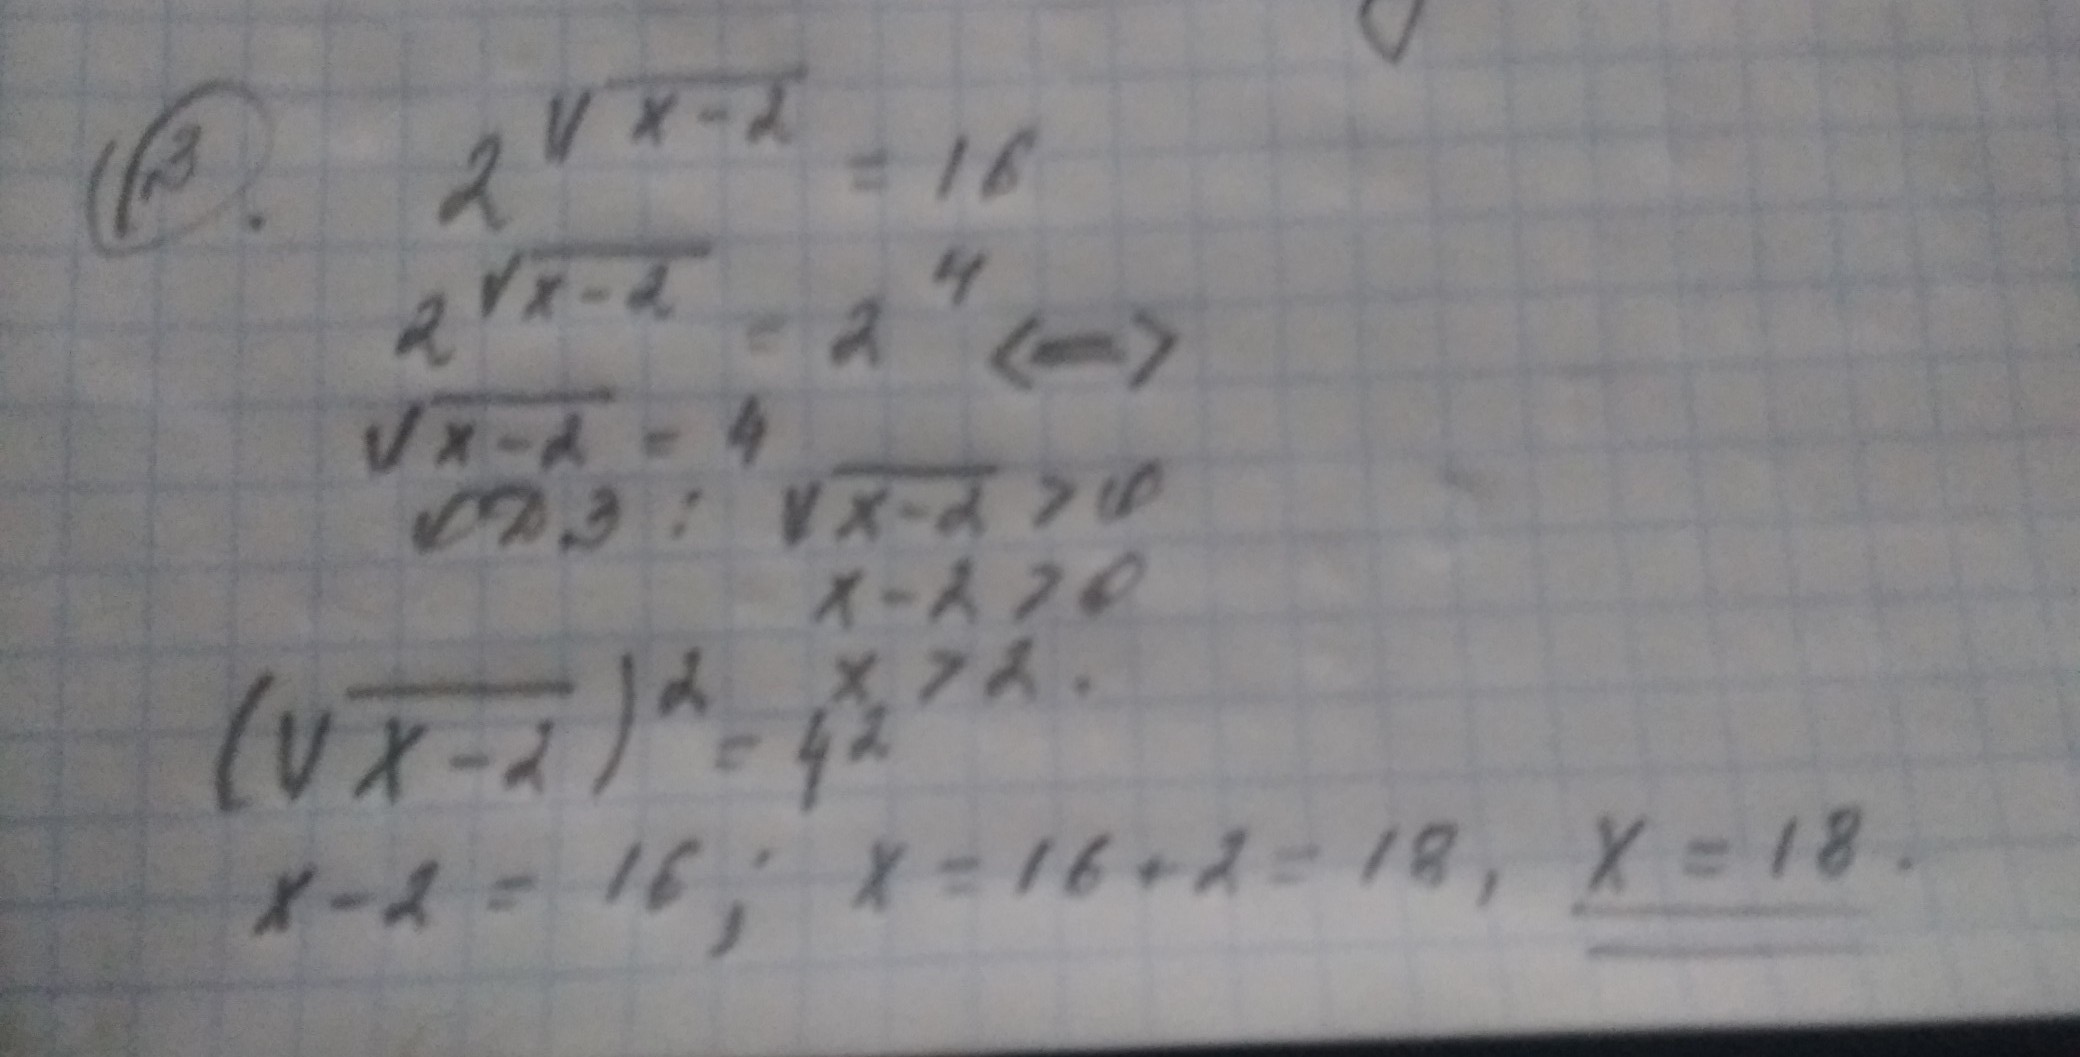 3. 2^√(x-2) = 16
2^√(x-2) = 2^4 <=>
√(x-2) = 4
ОДЗ: √(x-2) > 0
x-2 > 0
x > 2.
(√(x-2))^2 = 4^2
x-2 = 16; x = 16+2 = 18, x = 18.